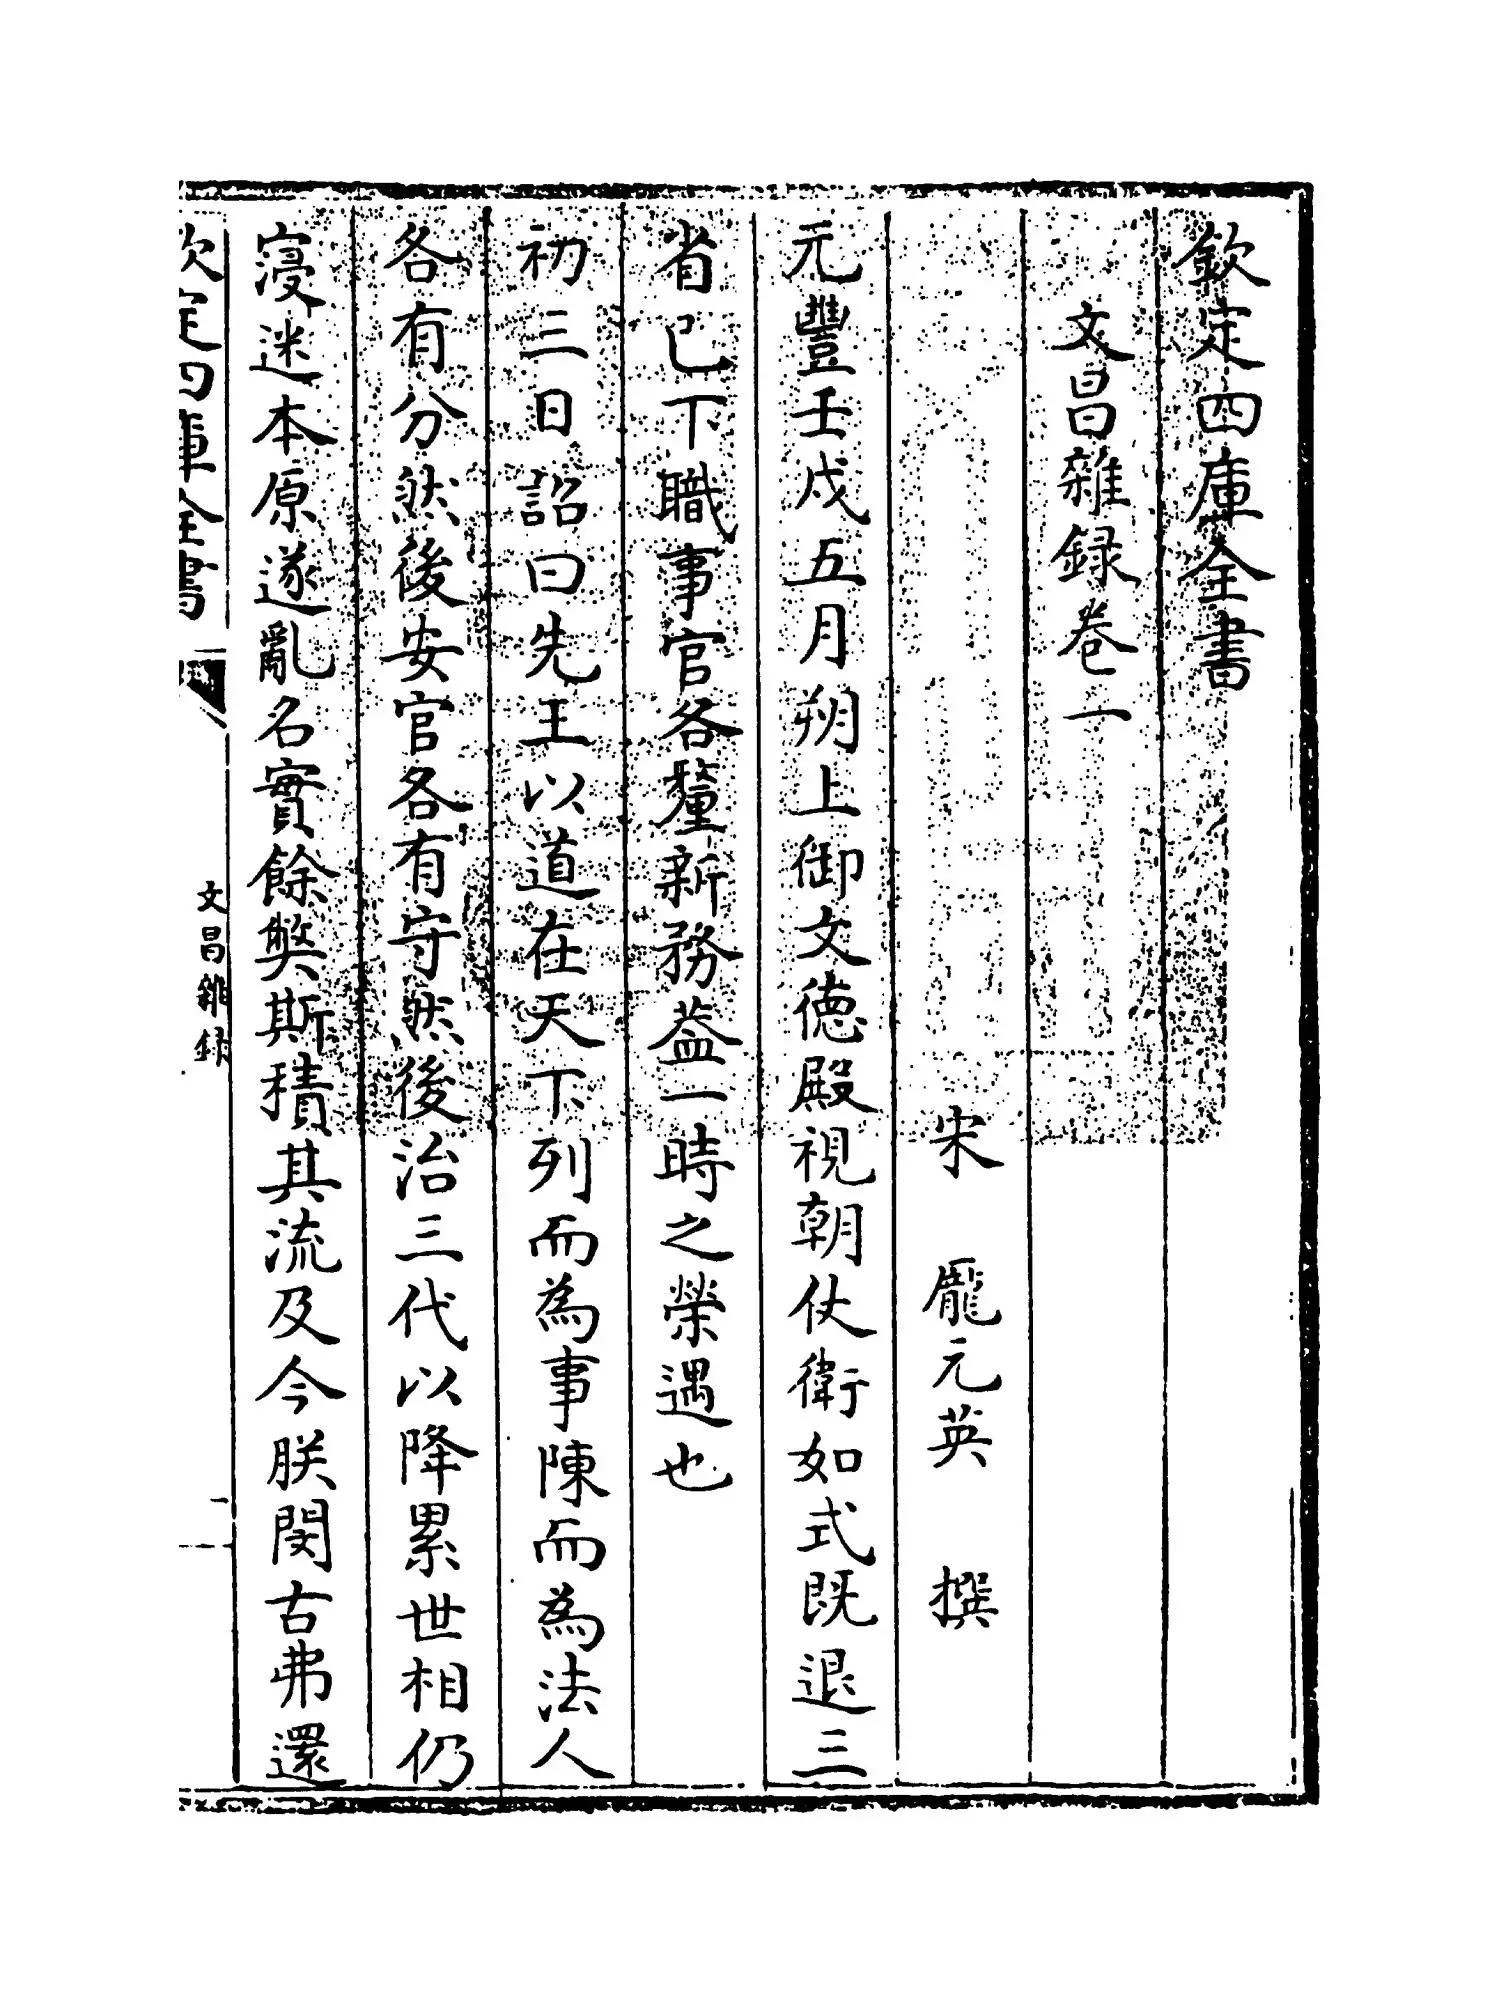 欽定四庫全書
文昌雜録卷一
宋 龎元英 撰
元豐壬戍五月朔上御文德殿視朝仗衛如式既退三
省已下職事官各釐新務葢一時之榮遇也
初三日詔曰先王以道在天下列而為事陳而為法人
各有分然後安官各有守然後治三代以降累世相仍
寖迷本原遂亂名實餘弊斯積其流及今朕閔古弗還
欽定四庫全書
文昌雜録
一